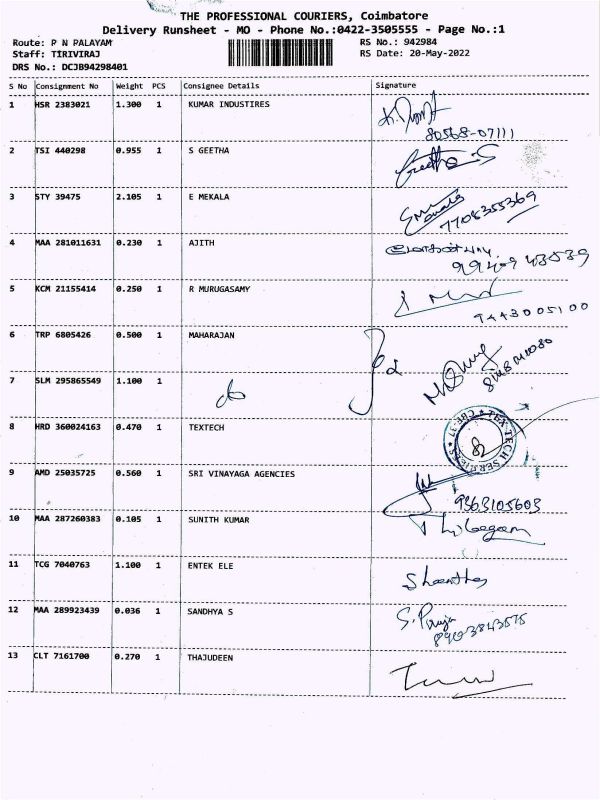 THE PROFESSIONAL COURIERS, Coimbatore
Delivery Runsheet - MO - Phone No.:0422-3505555 - Page No.:1
Route: P N PALAYAM RS No.: 942984
Staff: TIRIVIRAJ RS Date: 20-May-2022
DRS No.: DCJB94298401
S No Consignment No Weight PCS Consignee Details Signature
1 HSR 2383021 1.300 1 KUMAR INDUSTIRES
80568-07111
2 TSI 440298 0.955 1 S GEETHA Geetha S
3 STY 39475 2.105 1 E MEKALA
7708355369
4 MAA 281011631 0.230 1 AJITH
5 KCM 21155414 0.250 1 R MURUGASAMY
9443005100
6 TRP 6805426 0.500 1 MAHARAJAN
7 SLM 295865549 1.100 1
8 HRD 360024163 0.470 1 TEXTECH
9 AMD 25035725 0.560 1 SRI VINAYAGA AGENCIES
9363105603
10 MAA 287260383 0.105 1 SUNITH KUMAR
11 TCG 7040763 1.100 1 ENTEK ELE
12 MAA 289923439 0.036 1 SANDHYA S
13 CLT 7161700 0.270 1 THAJUDEEN